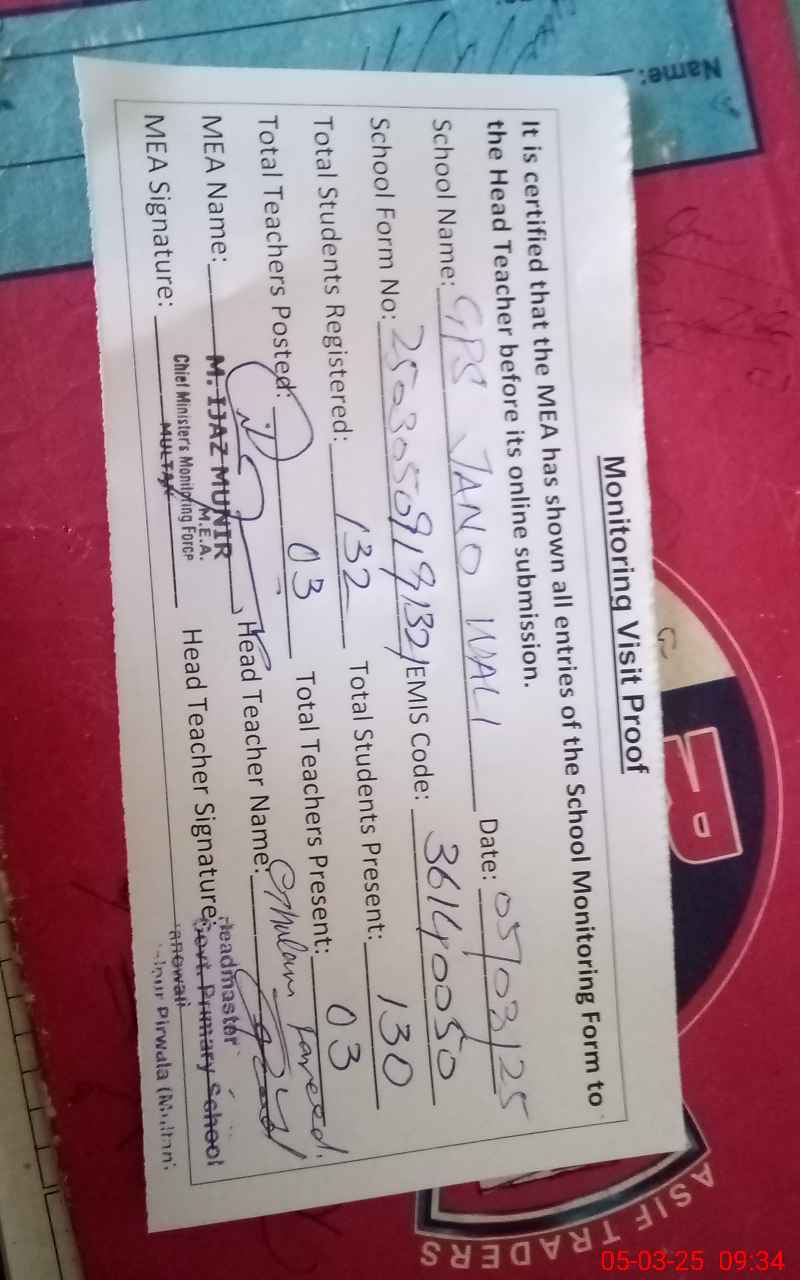 Monitoring Visit Proof
It is certified that the MEA has shown all entries of the School Monitoring Form to
the Head Teacher before its online submission.
School Name: GPS JANO WALI Date: 05/03/25
School Form No: 2503050919132 EMIS Code: 36140050
Total Students Registered: 132 Total Students Present: 130
Total Teachers Posted: 03 Total Teachers Present: 03
MEA Name: M. IJAZ MUNIR Head Teacher Name: Ghulam Fareed
M.E.A.
Chief Minister's Monitoring Force
MULTAN
MEA Signature: Head Teacher Signature:
Headmaster
Govt. Primary School
Pirwala (Multan)
Name:
ASIF TRADERS
05-03-25 09:34